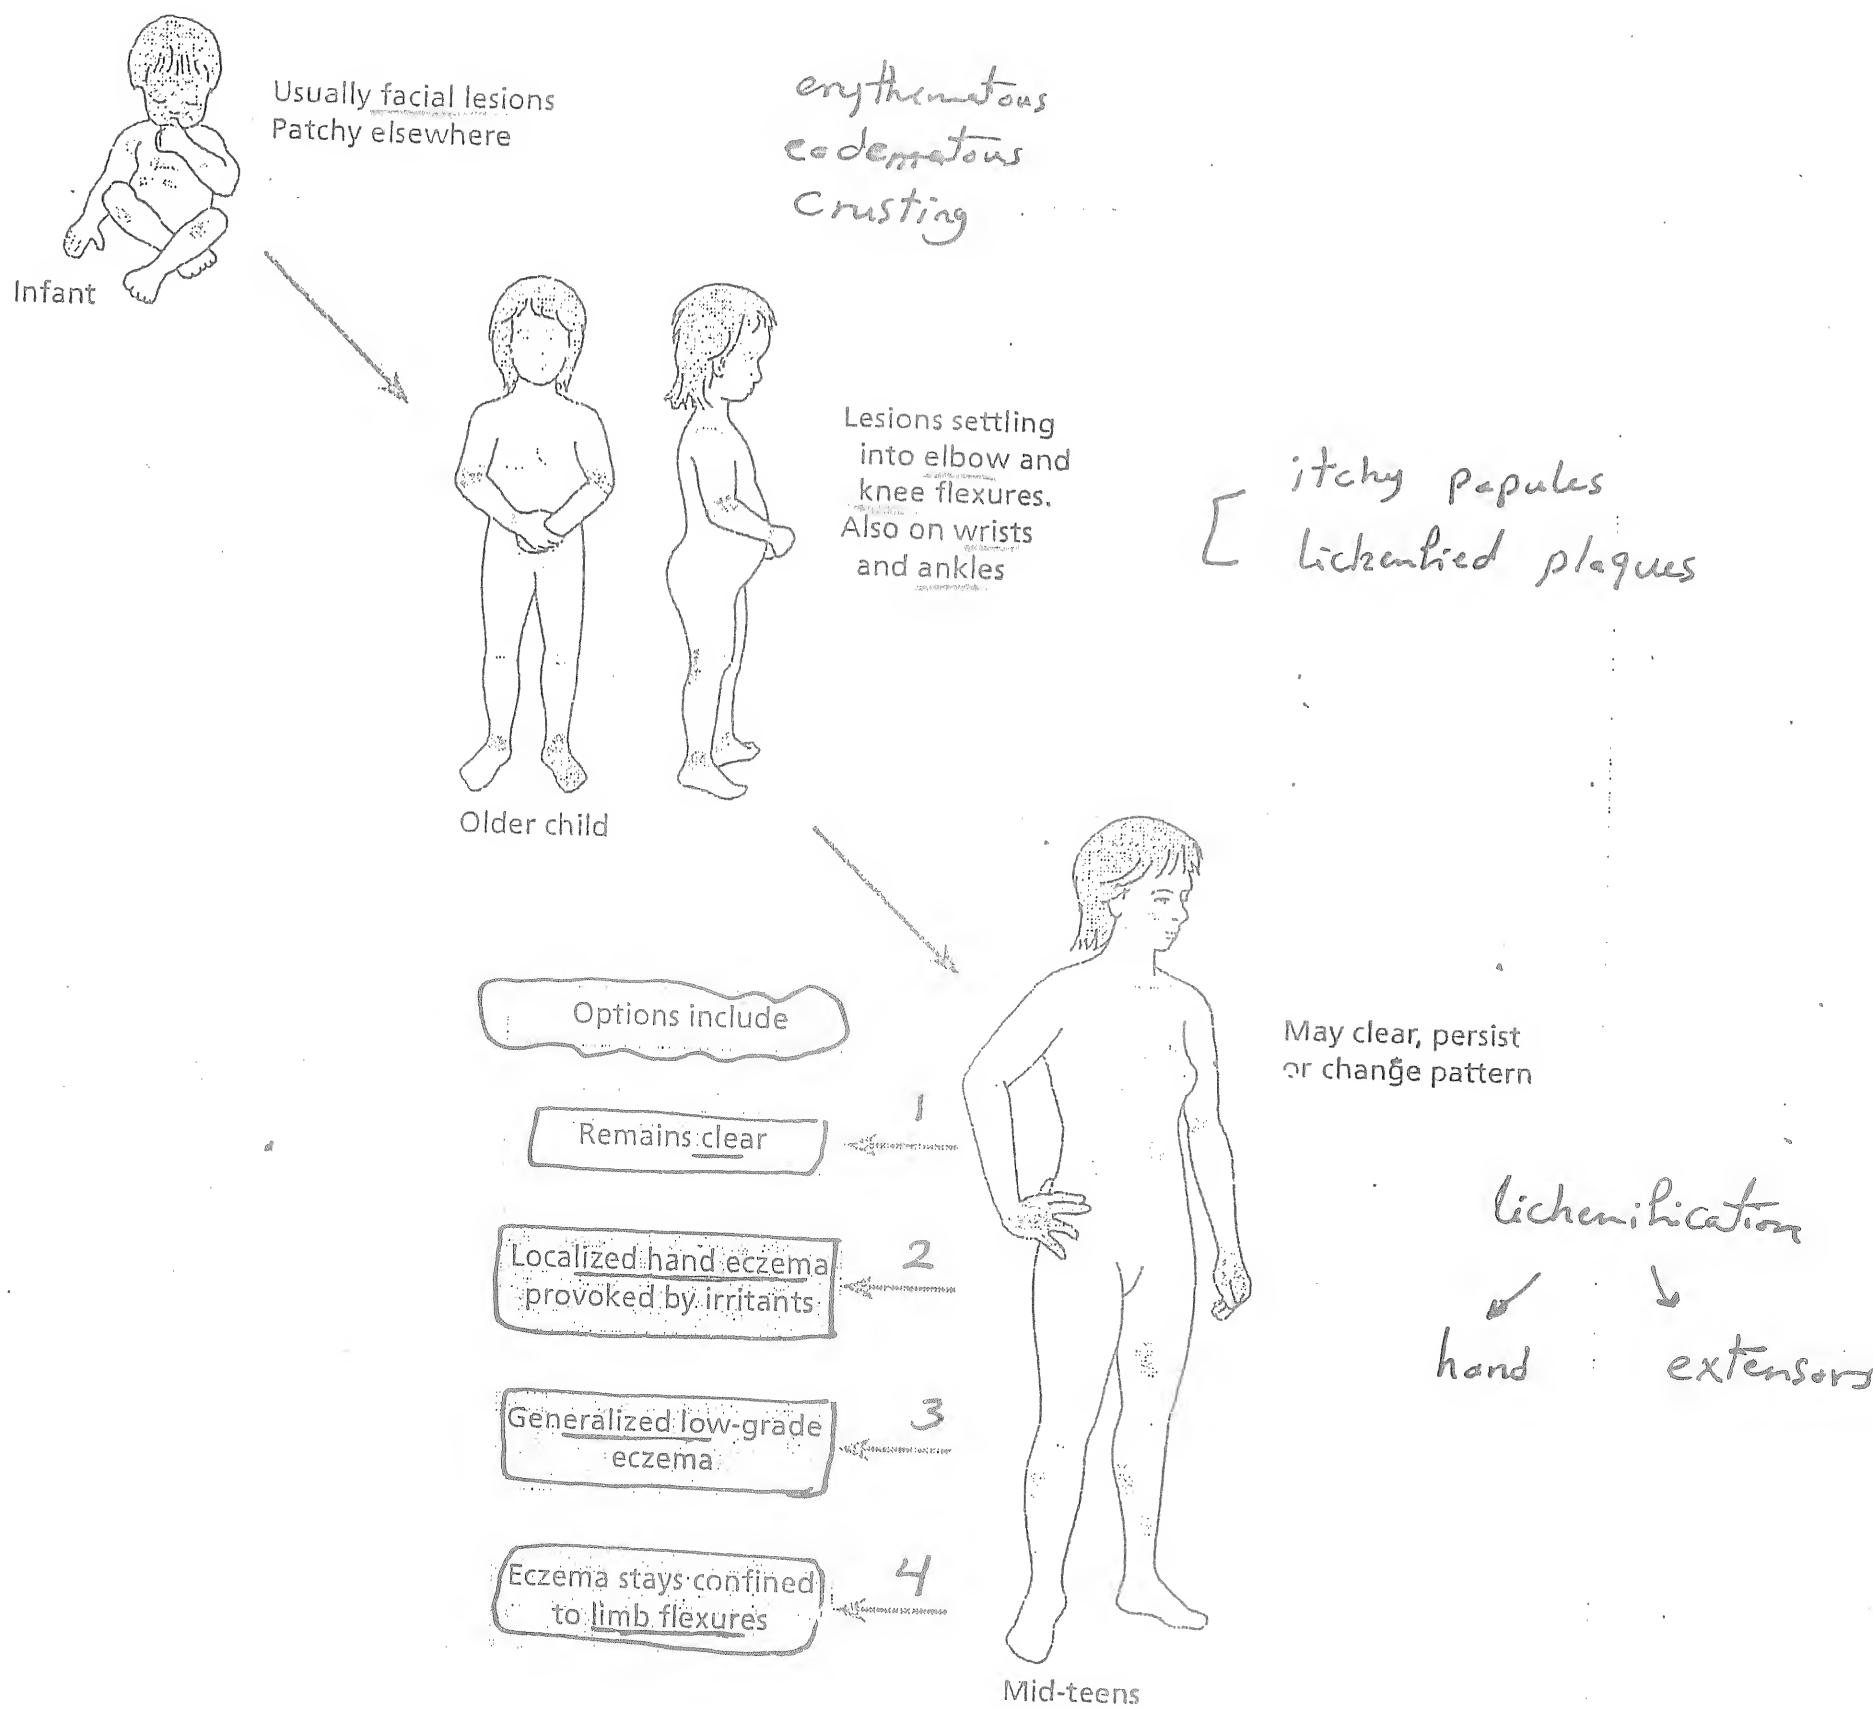 Usually facial lesions
Patchy elsewhere
erythematous
eodematous
Crusting
Infant
Lesions settling
into elbow and
knee flexures.
Also on wrists
and ankles
itchy papules
lichenified plaques
Older child
Options include
May clear, persist
or change pattern
1
Remains clear
lichenification
2
Localized hand eczema
provoked by irritants
hand
extensors
3
Generalized low-grade
eczema
4
Eczema stays confined
to limb flexures
Mid-teens